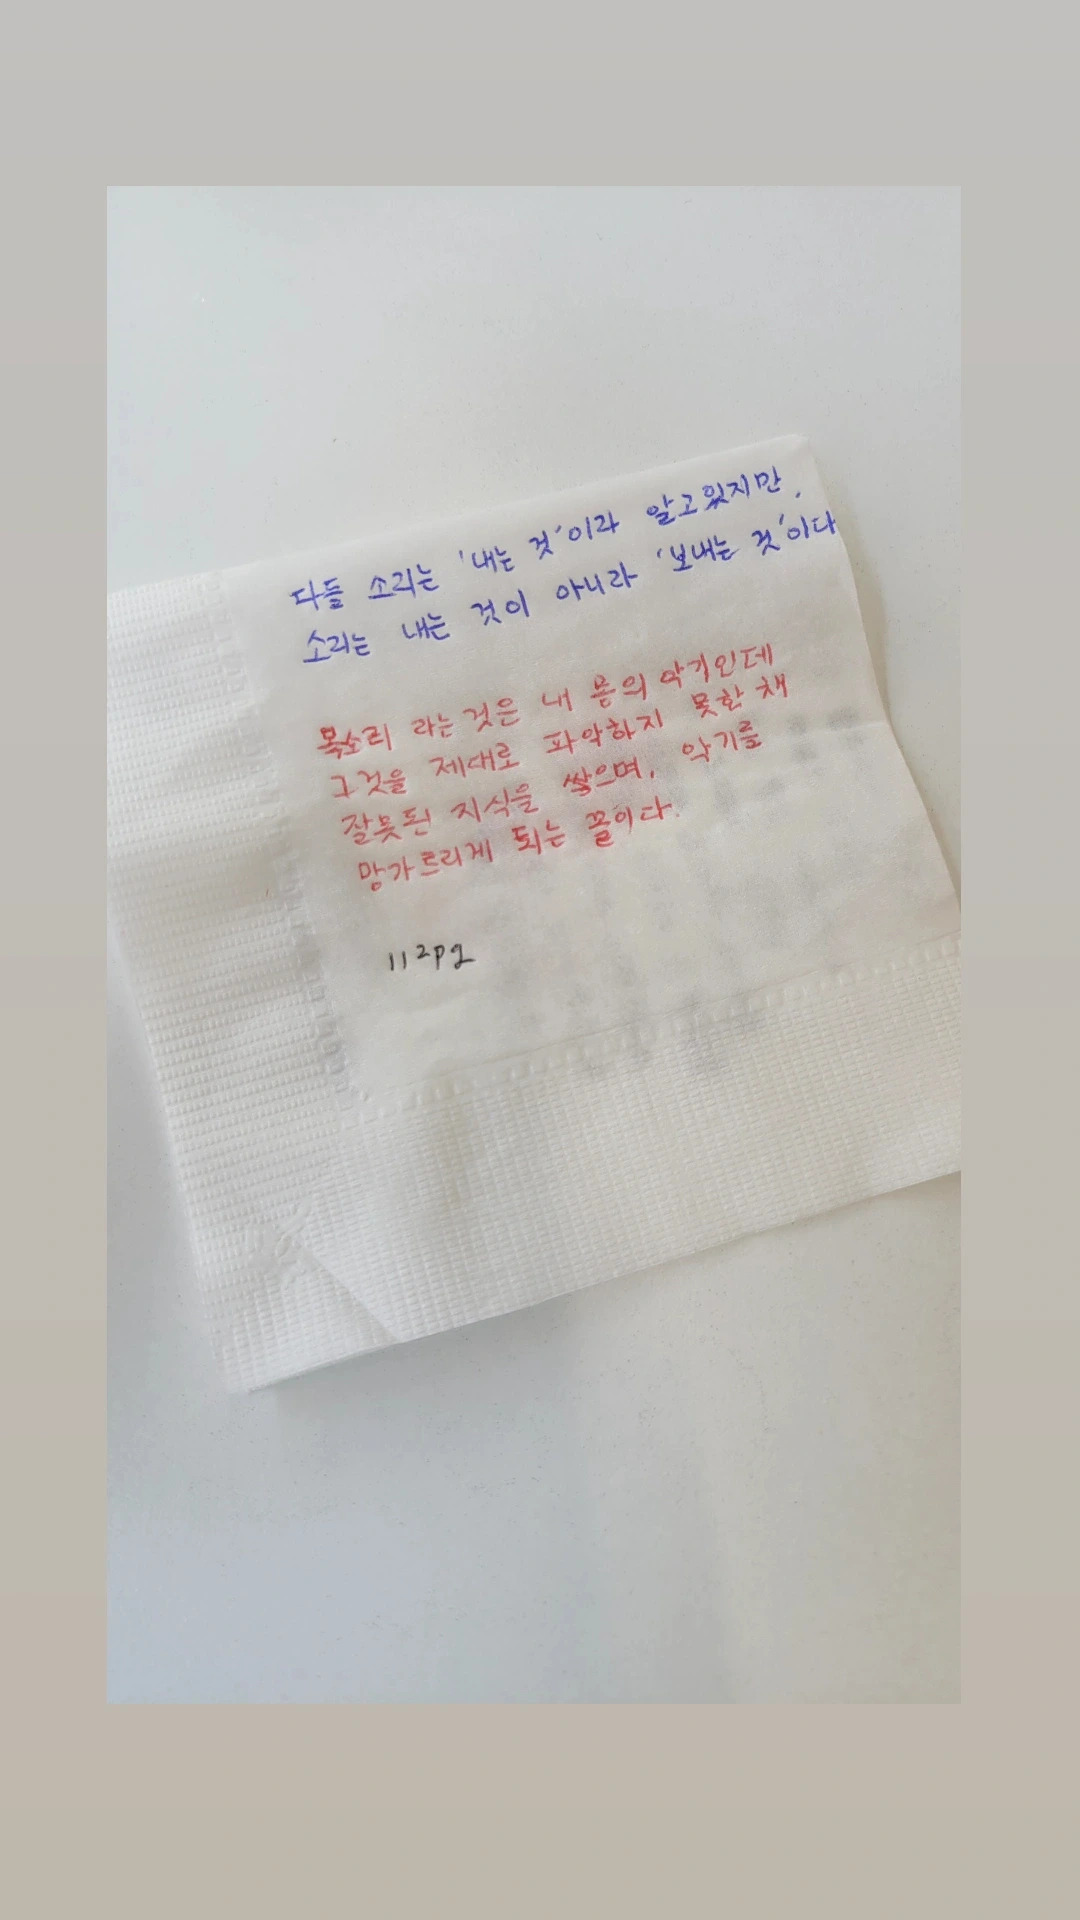 다들 소리는 '내는 것'이라 알고있지만,
소리는 내는 것이 아니라 '보내는 것'이다
목소리 라는 것은 내 몸의 악기인데
그것을 제대로 파악하지 못한 채
잘못된 지식을 쌓으며, 악기를
망가트리게 되는 꼴이다.
112pg